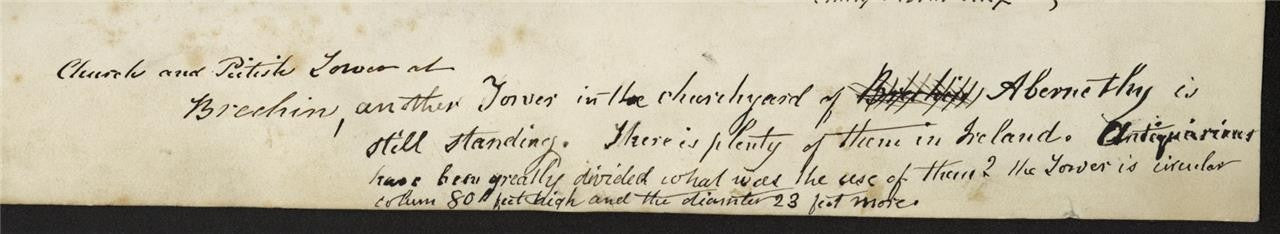 Church and Pictish Tower at
Brechin, another Tower in the churchyard of Abernethy is
still standing. There is plenty of them in Ireland. Antiquarians
have been greatly divided what was the use of them? the Tower is circular
colum 80 feet high and the diameter 23 feet more.